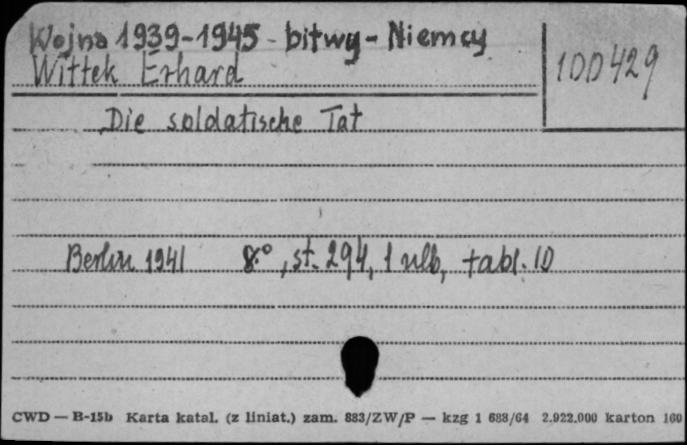 Wojna 1939-1945 - bitwy - Niemcy
Wittek Erhard
100429
Die soldatische Tat
Berlin 1941 8.°, st. 294, 1 nlb, tabl. 10
CWD — B-15b Karta katal. (z liniat.) zam. 883/ZW/P — kzg 1 688/64 2.922.000 karton 160